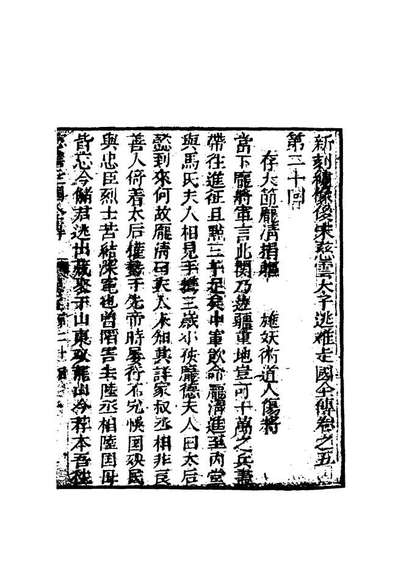 新刻繡像後宋慈雲太子逃難走國全傳卷之五
第二十回
存大節龐清捐軀　施妖術道人傷將
當下龐將軍言此関乃邊疆重地豈可千萬之兵盡
帶往進征且點三千足矣中軍飲命龐清進至內堂
與馬氏夫人相見手攜三歲小俠龐德夫人曰太后
懿到來何故龐清曰夫人未知其詳家叔丞相非良
善人倚着太后權勢于先帝時屢行不究悞国殃民
與忠臣烈士苦結深寃也曾陷害去陸丞相陸国母
皆忘今儲君逃出 于山東 今存本吾